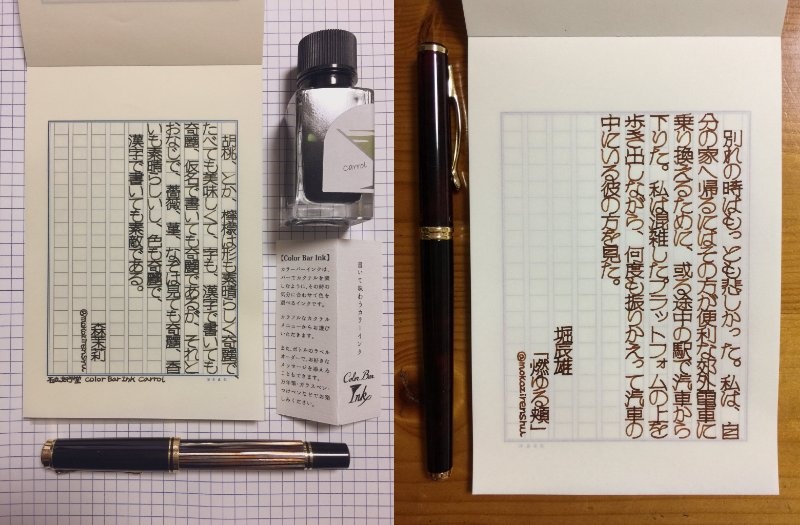 胡桃、とか、檸檬は形も素晴らしく奇麗で
たべても美味しくて、字も、漢字で書いても
奇麗、仮名で書いても奇麗であるが、それと
おなじで、薔薇、菫、なぞは見ても奇麗、香
いも素晴らしいし、色も奇麗で、
漢字で書いても素敵である。
森茉利
@mokazirenshu
石丸文行堂 Color Bar Ink Carrol
carrol
【Color Bar Ink】
カラーバーインクは、
バーでカクテルを楽
しむように、その時の
気分に合わせて色を
選べるインクです。
カラフルなカクテル
メニューからお選び
いただきます。
また、ボトルのラベル
オーダーで、お好きな
メッセージを添える
こともできます。
万年筆・ガラスペン・
つけペンなどでお楽
しみください。
書いて味わうカラーインク
Color Bar
Ink
別れの時はもっとも悲しかった。私は、自
分の家へ帰るにはその方が便利な郊外電車に
乗り換えるために、或る途中の駅で汽車から
下りた。私は混雑したプラットフォムの上を
歩き出しながら、何度も振りかえって汽車の
中にいる彼の方を見た。
堀辰雄
「燃ゆる頬」
@mokazirenshu